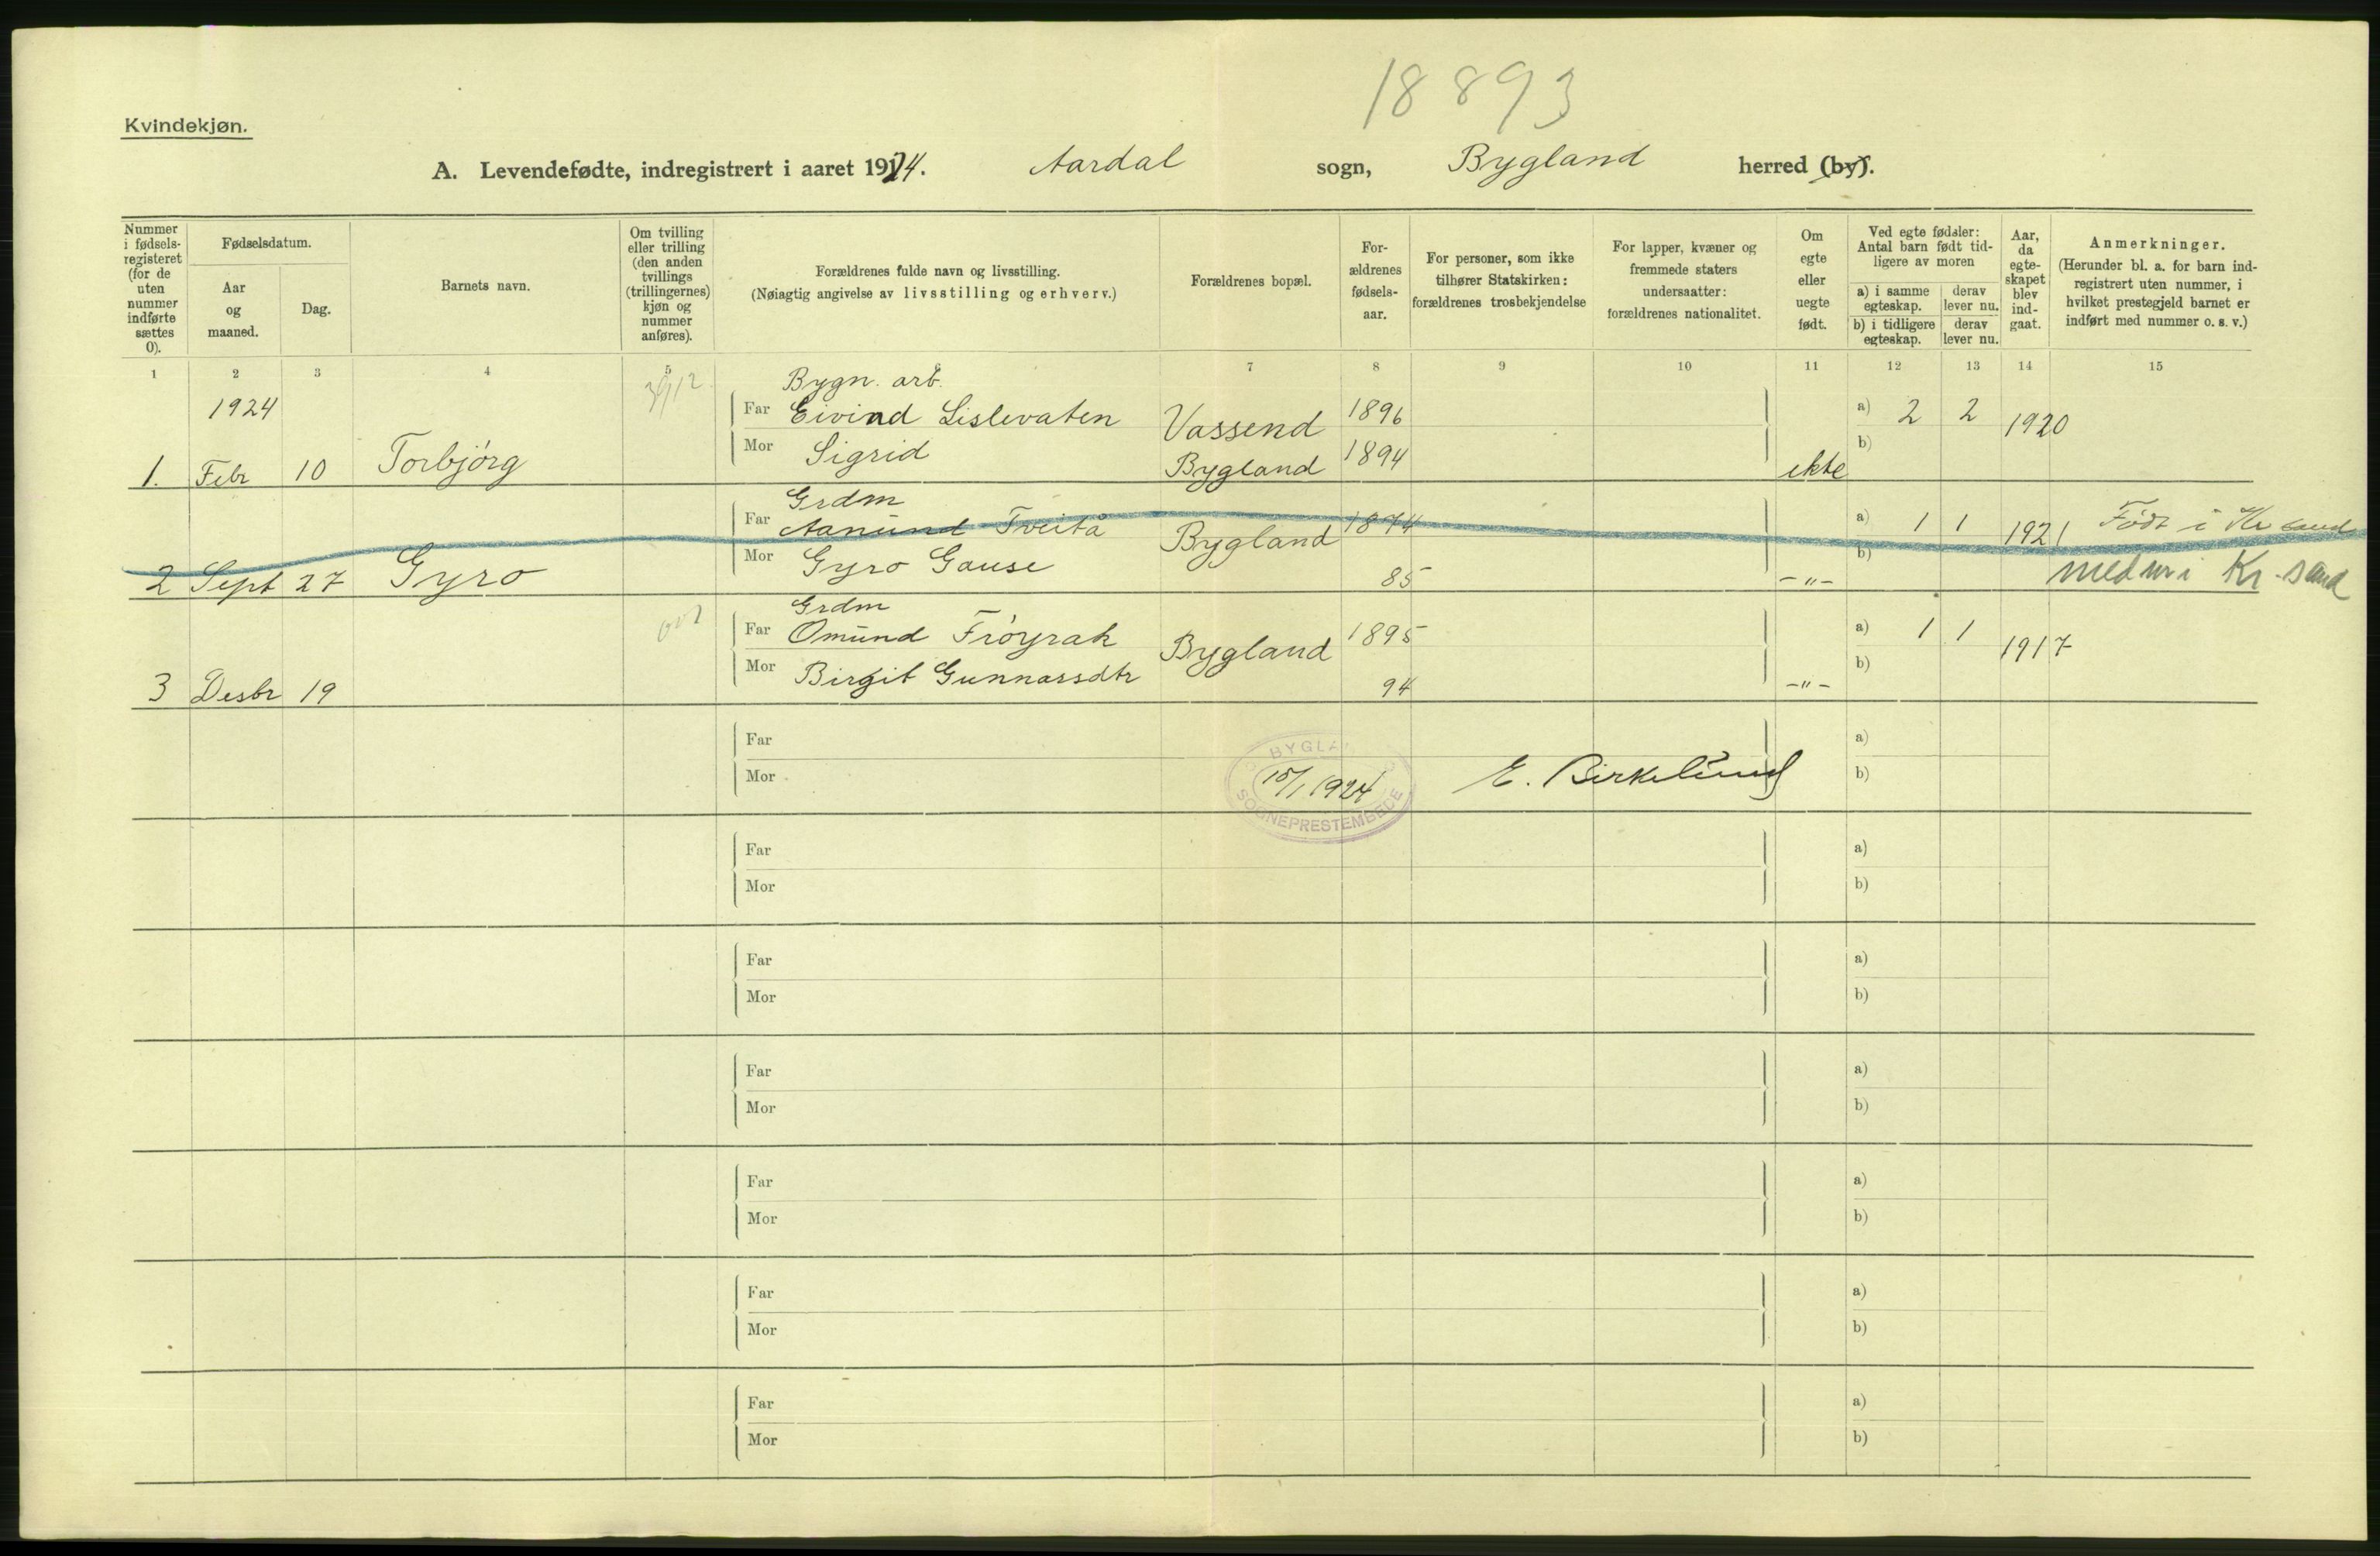 18893
Kvindekjøn.
A. Levendefødte, indregistrert i aaret 1924. Aardal sogn, Bygland herred (by).
Nummer i fødselsregisteret (for de uten nummer indførte sættes 0).
Fødselsdatum.
Aar og maaned.
Dag.
Barnets navn.
Om tvilling eller trilling (den anden tvillings (trillingernes) kjøn og nummer anføres).
Forældrenes fulde navn og livsstilling.
(Nøiagtig angivelse av livsstilling og erhverv.)
Forældrenes bopæl.
Forældrenes fødselsaar.
For personer, som ikke tilhører Statskirken: forældrenes trosbekjendelse
For lapper, kvæner og fremmede staters undersaatter: forældrenes nationalitet.
Om egte eller uegte født.
Ved egte fødsler: Antal barn født tidligere av moren
a) i samme egteskap. derav lever nu.
b) i tidligere egteskap. derav lever nu.
Aar, da egteskapet blev indgaat.
Anmerkninger.
(Herunder bl. a. for barn indregistrert uten nummer, i hvilket prestegjeld barnet er indført med nummer o. s. v.)
1 2 3 4 5 6 7 8 9 10 11 12 13 14 15
Bygn. arb.
1924 Far Eivind Lislevaten Vassend 1896 a) 2 2 1920
Mor Sigrid Bygland 1894 b)
1. Febr 10 Torbjörg ekte
Grdm
Far Aanund Tveitå Bygland 1874 a) 1 1 1921 Födt i Kr sand
Mor Gyro Gause 85 b)
2 Sept 27 Gyro -"- med nr i Kr.sand
Grdm
Far Omund Fröyrak Bygland 1895 a) 1 1 1917
Mor Birgit Gunnarsdtr 94 b)
3 Desbr 19 -"-
Far a)
Mor b)
BYGLA
15/1 1924
SOGNEPRESTEMBEDE
E. Birkelund
Far a)
Mor b)
Far a)
Mor b)
Far a)
Mor b)
Far a)
Mor b)
Far a)
Mor b)
Far a)
Mor b)